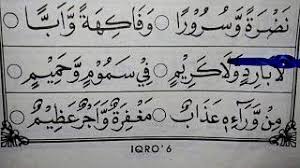 نَضْرَةً وَّسُرُوْرًا ○ وَفَاكِهَةً وَّاَبًّا
لَا بَارِدٍ وَّلَا كَرِيْمٍ ○ فِيْ سَمُوْمٍ وَّحَمِيْمٍ
مِنْ وَّرَآءِهٖ عَذَابٌ ○ مَغْفِرَةٌ وَّاَجْرٌ عَظِيْمٌ
IQRO'6